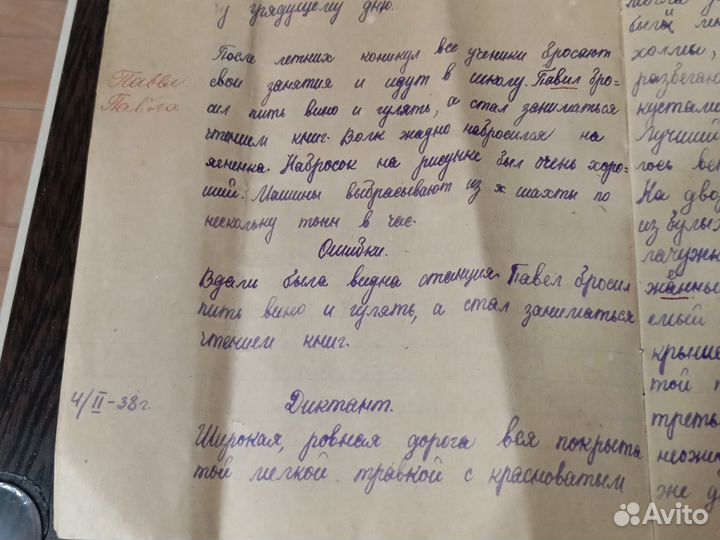 у грядущему дню.
После летних коникул все ученики бросают
свои занятия и идут в школу. Павил бро-
сил пить вино и гулять, а стал заниматься
чтением книг. Волк жадно набросился на
ягненка. Набросок на рисунке был очень хоро-
ший. Машины выбрасывают из х шахты по
нескольку тонн в час.
Павел
Павла
Ошибки.
Вдали была видна станция. Павел бросил
пить вино и гулять, а стал заниматься
чтением книг.
4/II-38г.
Диктант.
Широкая, ровная дорога вся покрыта
той мелкой травкой с красноватым
был
холмы,
разбега
кустали
Лучший
лось ве
На дво
из булы
лачужк
жанны
емый
крыше
той
треть
неожи
же д
Avito